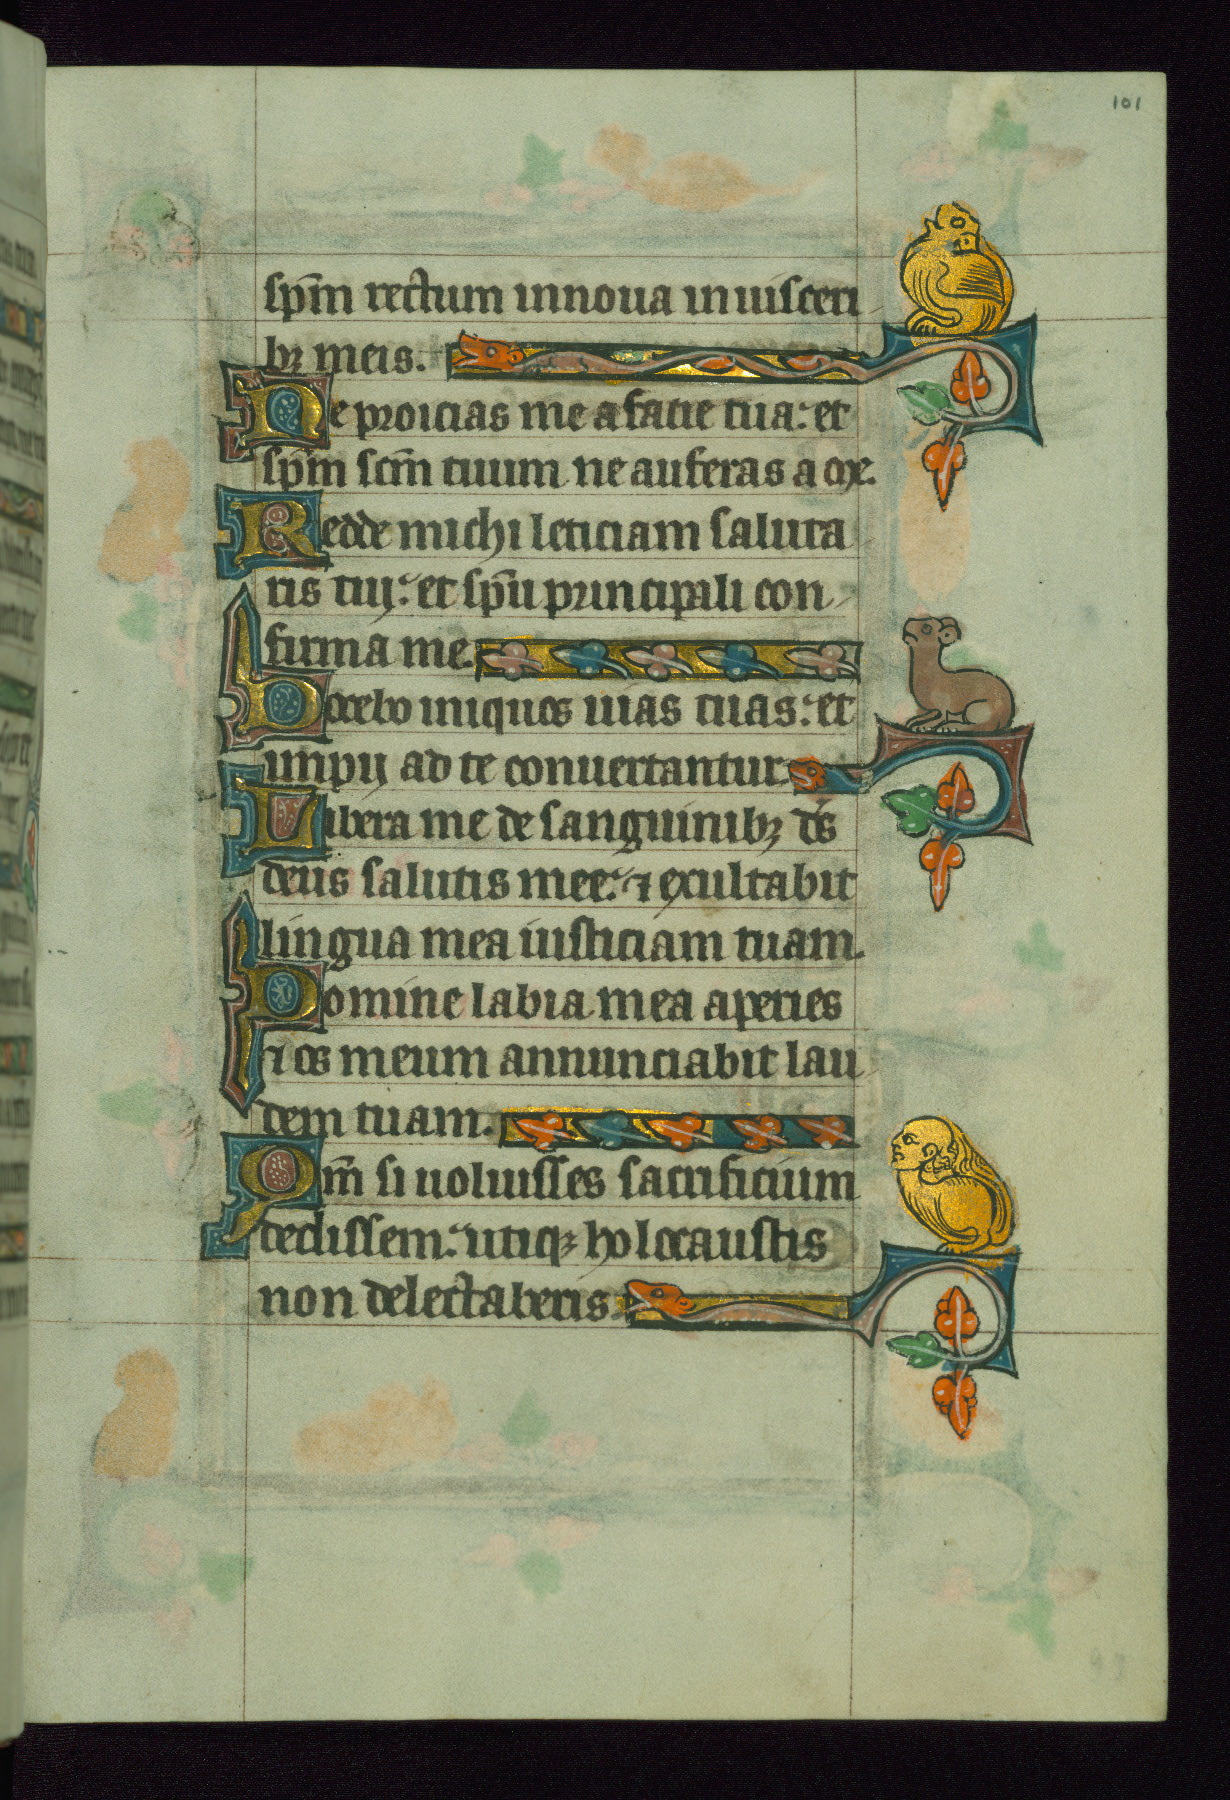 101
sp̄m rectum innoua in uisceri
bꝫ meis.
Ne proicias me a facie tua: et
sp̄m sc̄m tuum ne auferas a me.
Redde michi leticiam saluta
ris tuij: et sp̄u principali con
firma me.
Docebo iniquos uias tuas: et
impij ad te conuertantur.
Libera me de sanguinibꝫ ds̄
deus salutis mee: ⁊ exultabit
lingua mea iusticiam tuam.
Domine labia mea aperies
⁊ os meum annunciabit lau
dem tuam.
Qm̄ si uoluisses sacrificium
dedissem: utiqꝫ holocaustis
non delectaberis